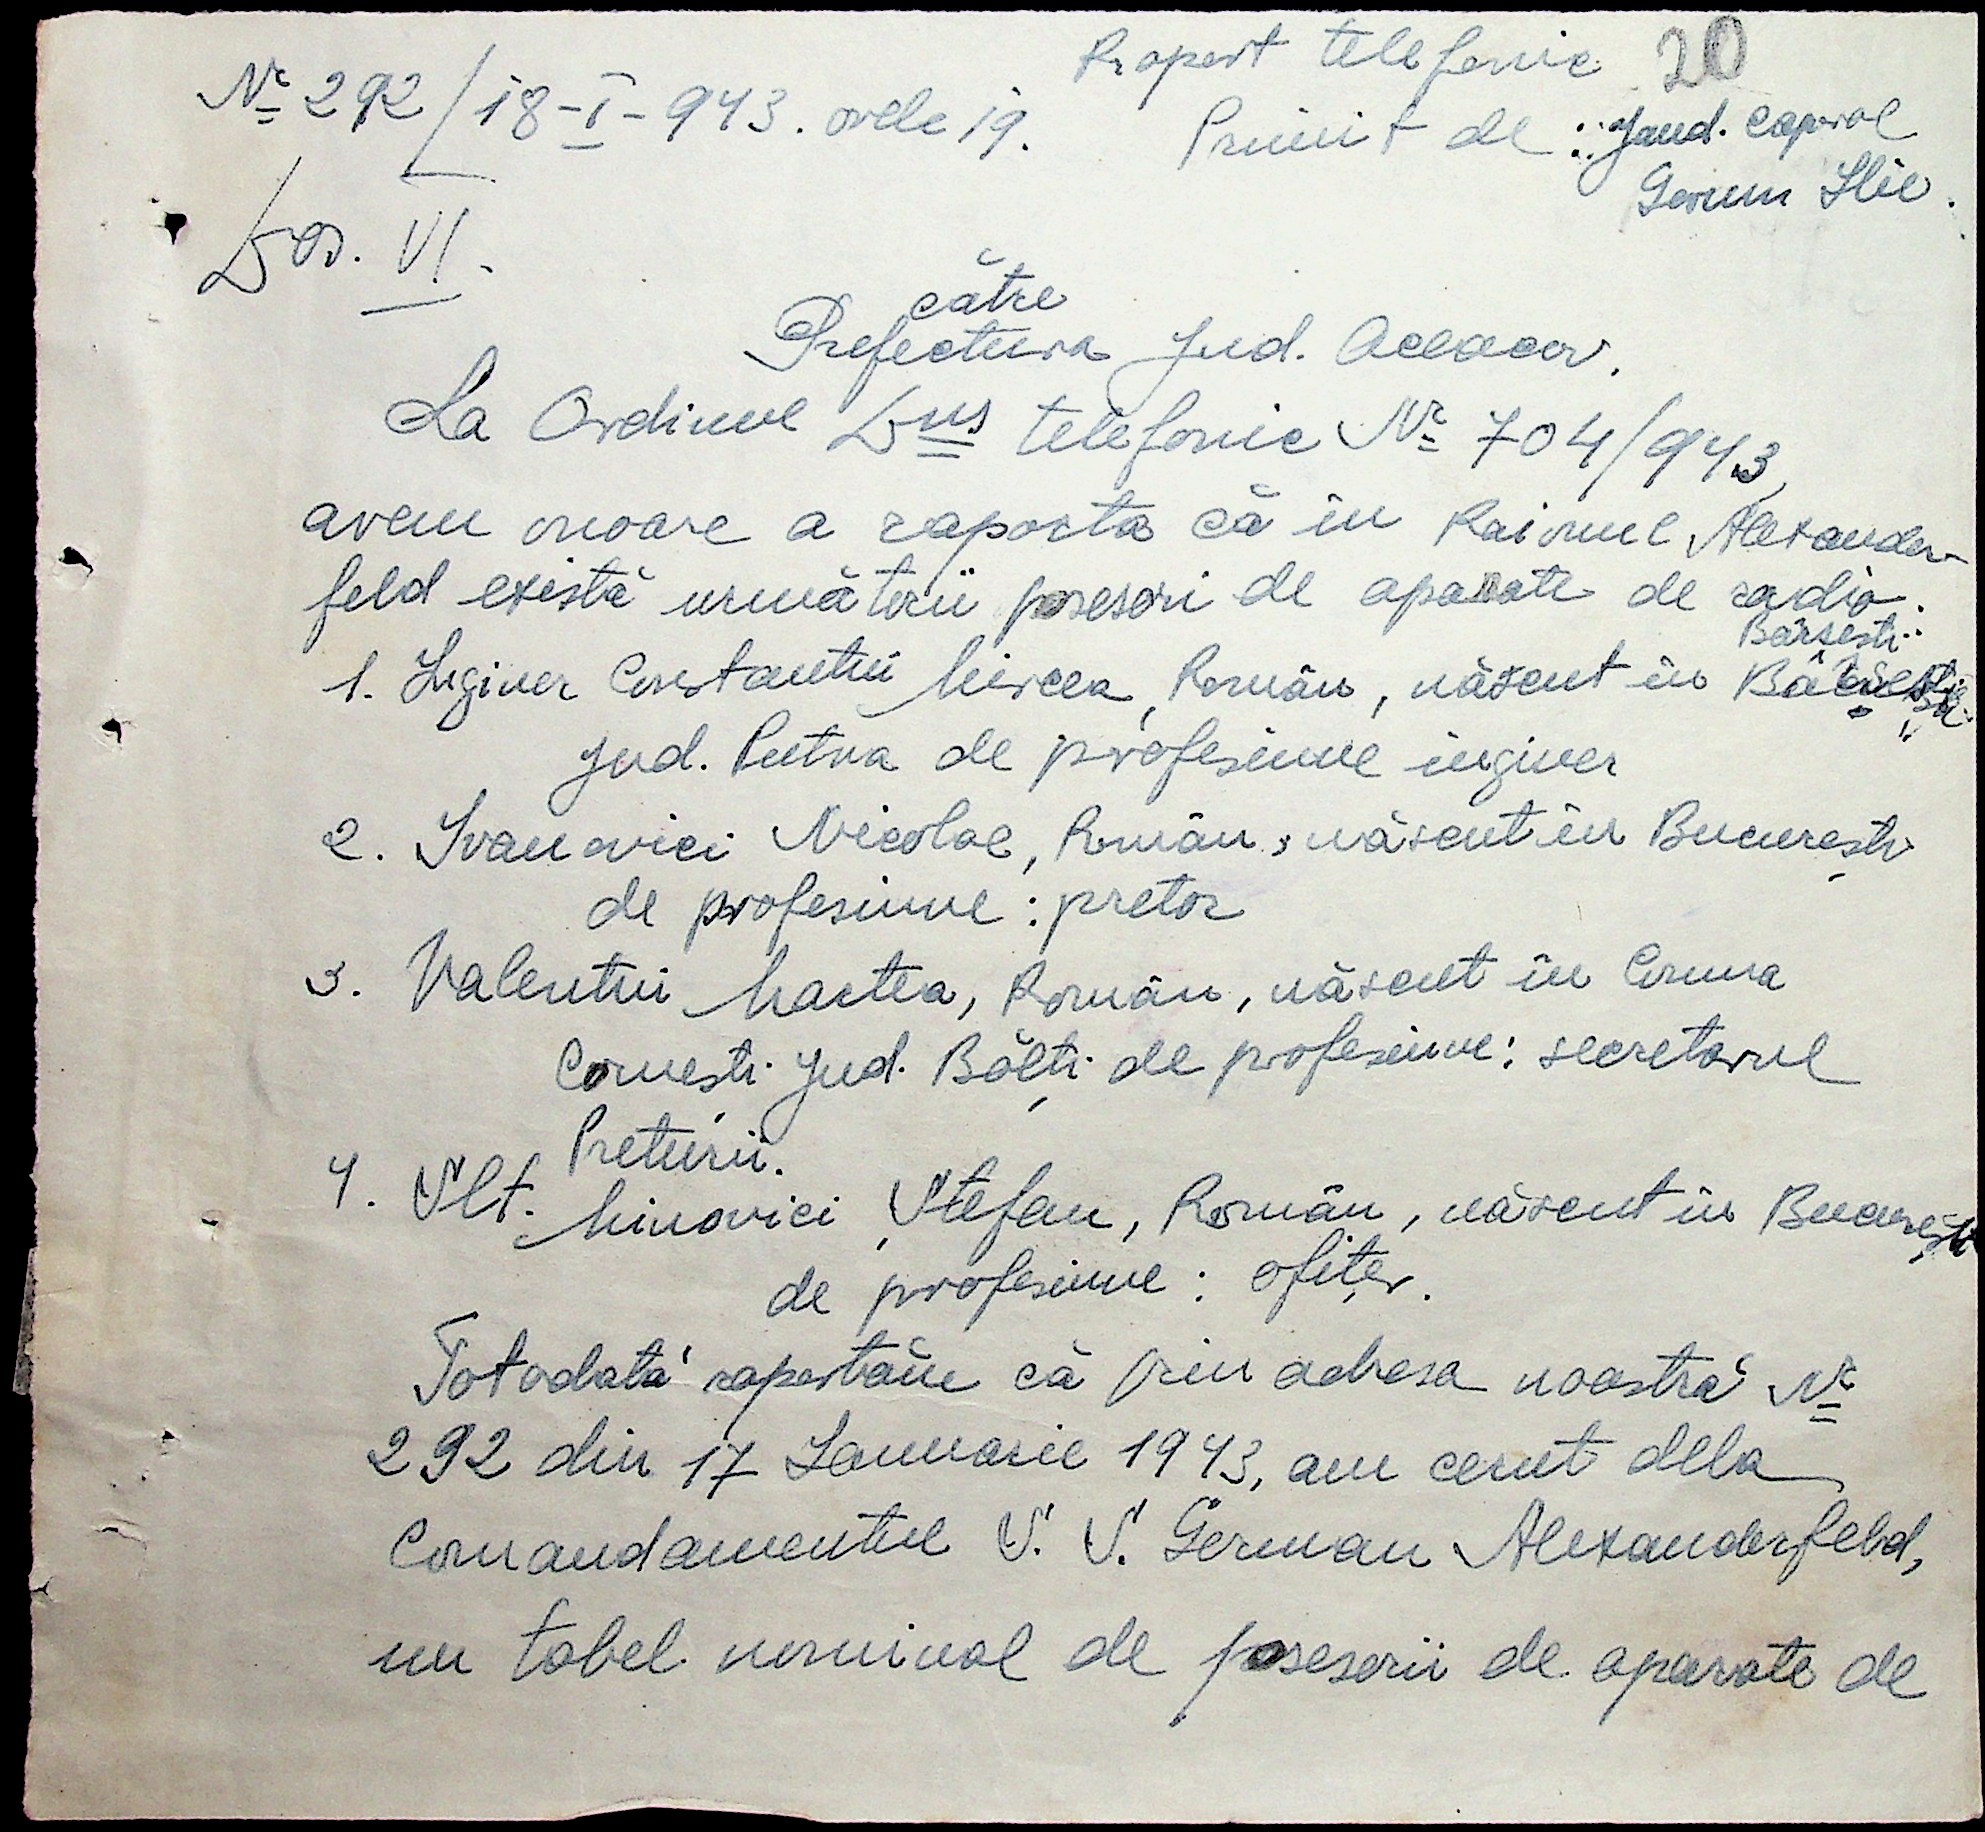 Raport telefonic 20
Nr 292/18-I-943. orele 19. Primit de: Jand. Caporal
Gorun Ilie.
Dos. VI.
către
Prefectura Jud. Oceacov.
La Ordinul Dvs telefonic Nr 704/943,
avem onoare a raporta că în Raionul Alexander-
feld există următorii posesori de aparate de radio.
Bârsești
1. Inginer Constantin Mircea, Român, născut în
jud. Putna de profesiune inginer
2. Ivanovici Nicolae, Român, născut în București
de profesiune: pretor
3. Valentin Martea, Român, născut în Comuna
Cornești Jud. Bălți de profesiune: secretarul
Preturii.
4. Slt. Minovici Ștefan, Român, născut în București
de profesiune: ofițer.
Totodată raportăm că prin adresa noastră Nr
292 din 17 Ianuarie 1943, am cerut dela
Comandamentul S. S. German Alexanderfeld,
un tabel nominal de posesorii de aparate de